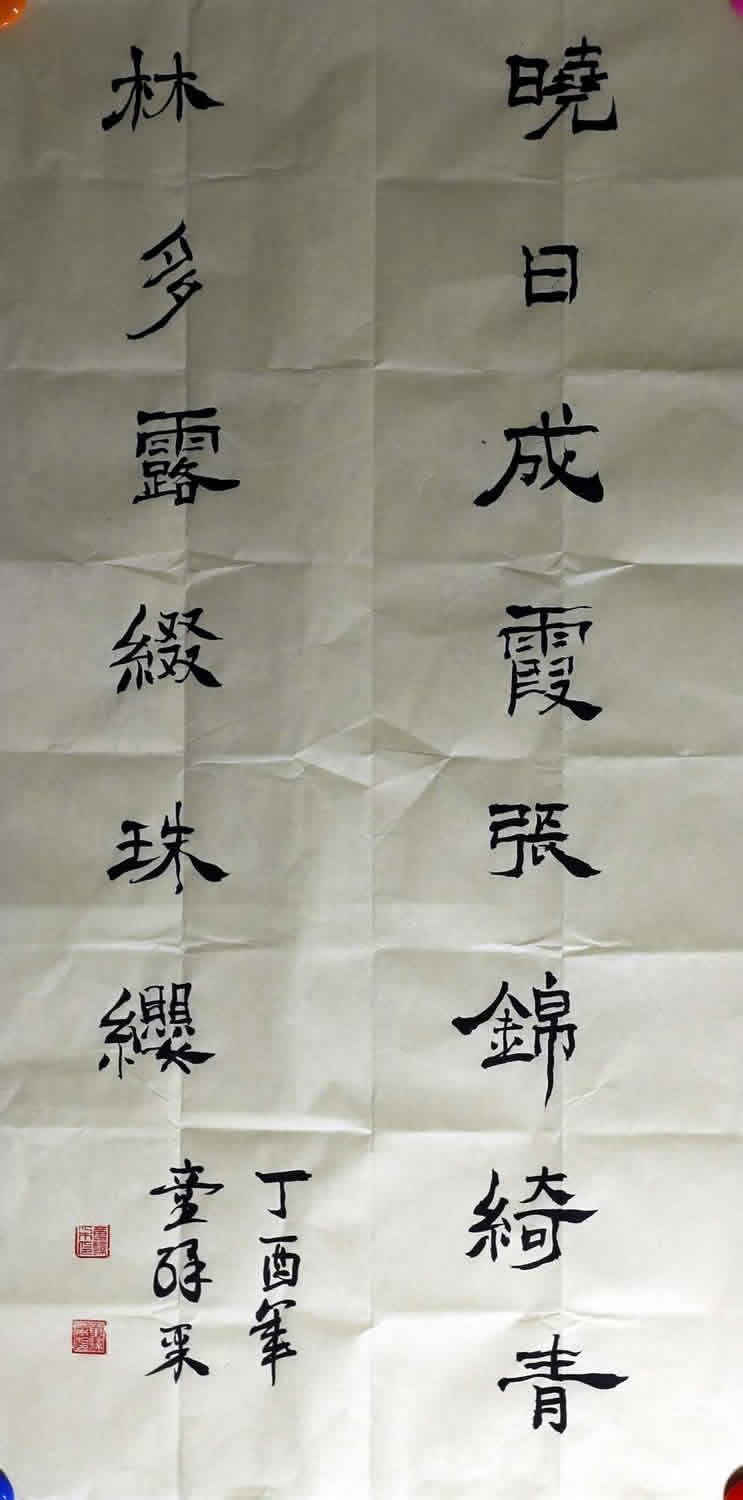 曉日成霞張錦綺青
林多露綴珠纓
丁酉年
童